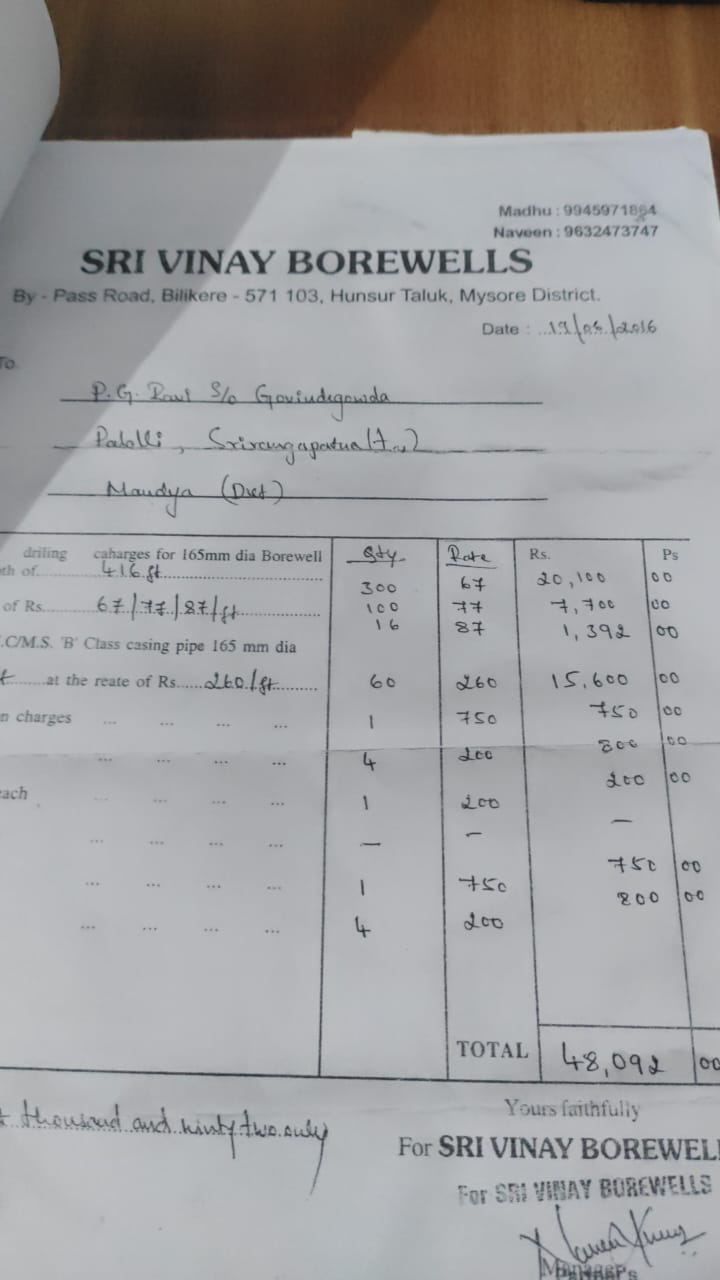 Madhu : 9945971864
Naveen : 9632473747
SRI VINAY BOREWELLS
By - Pass Road, Bilikere - 571 103, Hunsur Taluk, Mysore District.
Date : ../2016
To
P.G. S/o Govindegowda
Mandya (Dist)
driling caharges for 165mm dia Borewell Qty Rate Rs. Ps
th of 416 ft 300 67 20,100 00
of Rs. 67/77/87/ft 100 77 7,700 00
16 87 1,392 00
.C/M.S. 'B' Class casing pipe 165 mm dia
at the reate of Rs. 260/ft 60 260 15,600 00
n charges ... ... ... ... 1 750 750 00
... ... ... ... 4 200 800 00
each ... ... ... ... 1 200 200 00
... ... ... ... — – –
... ... ... ... 1 750 750 00
... ... ... ... 4 200 800 00
TOTAL 48,092 00
thousand and ninty two only
Yours faithfully
For SRI VINAY BOREWEL
For SRI VINAY BOREWELLS